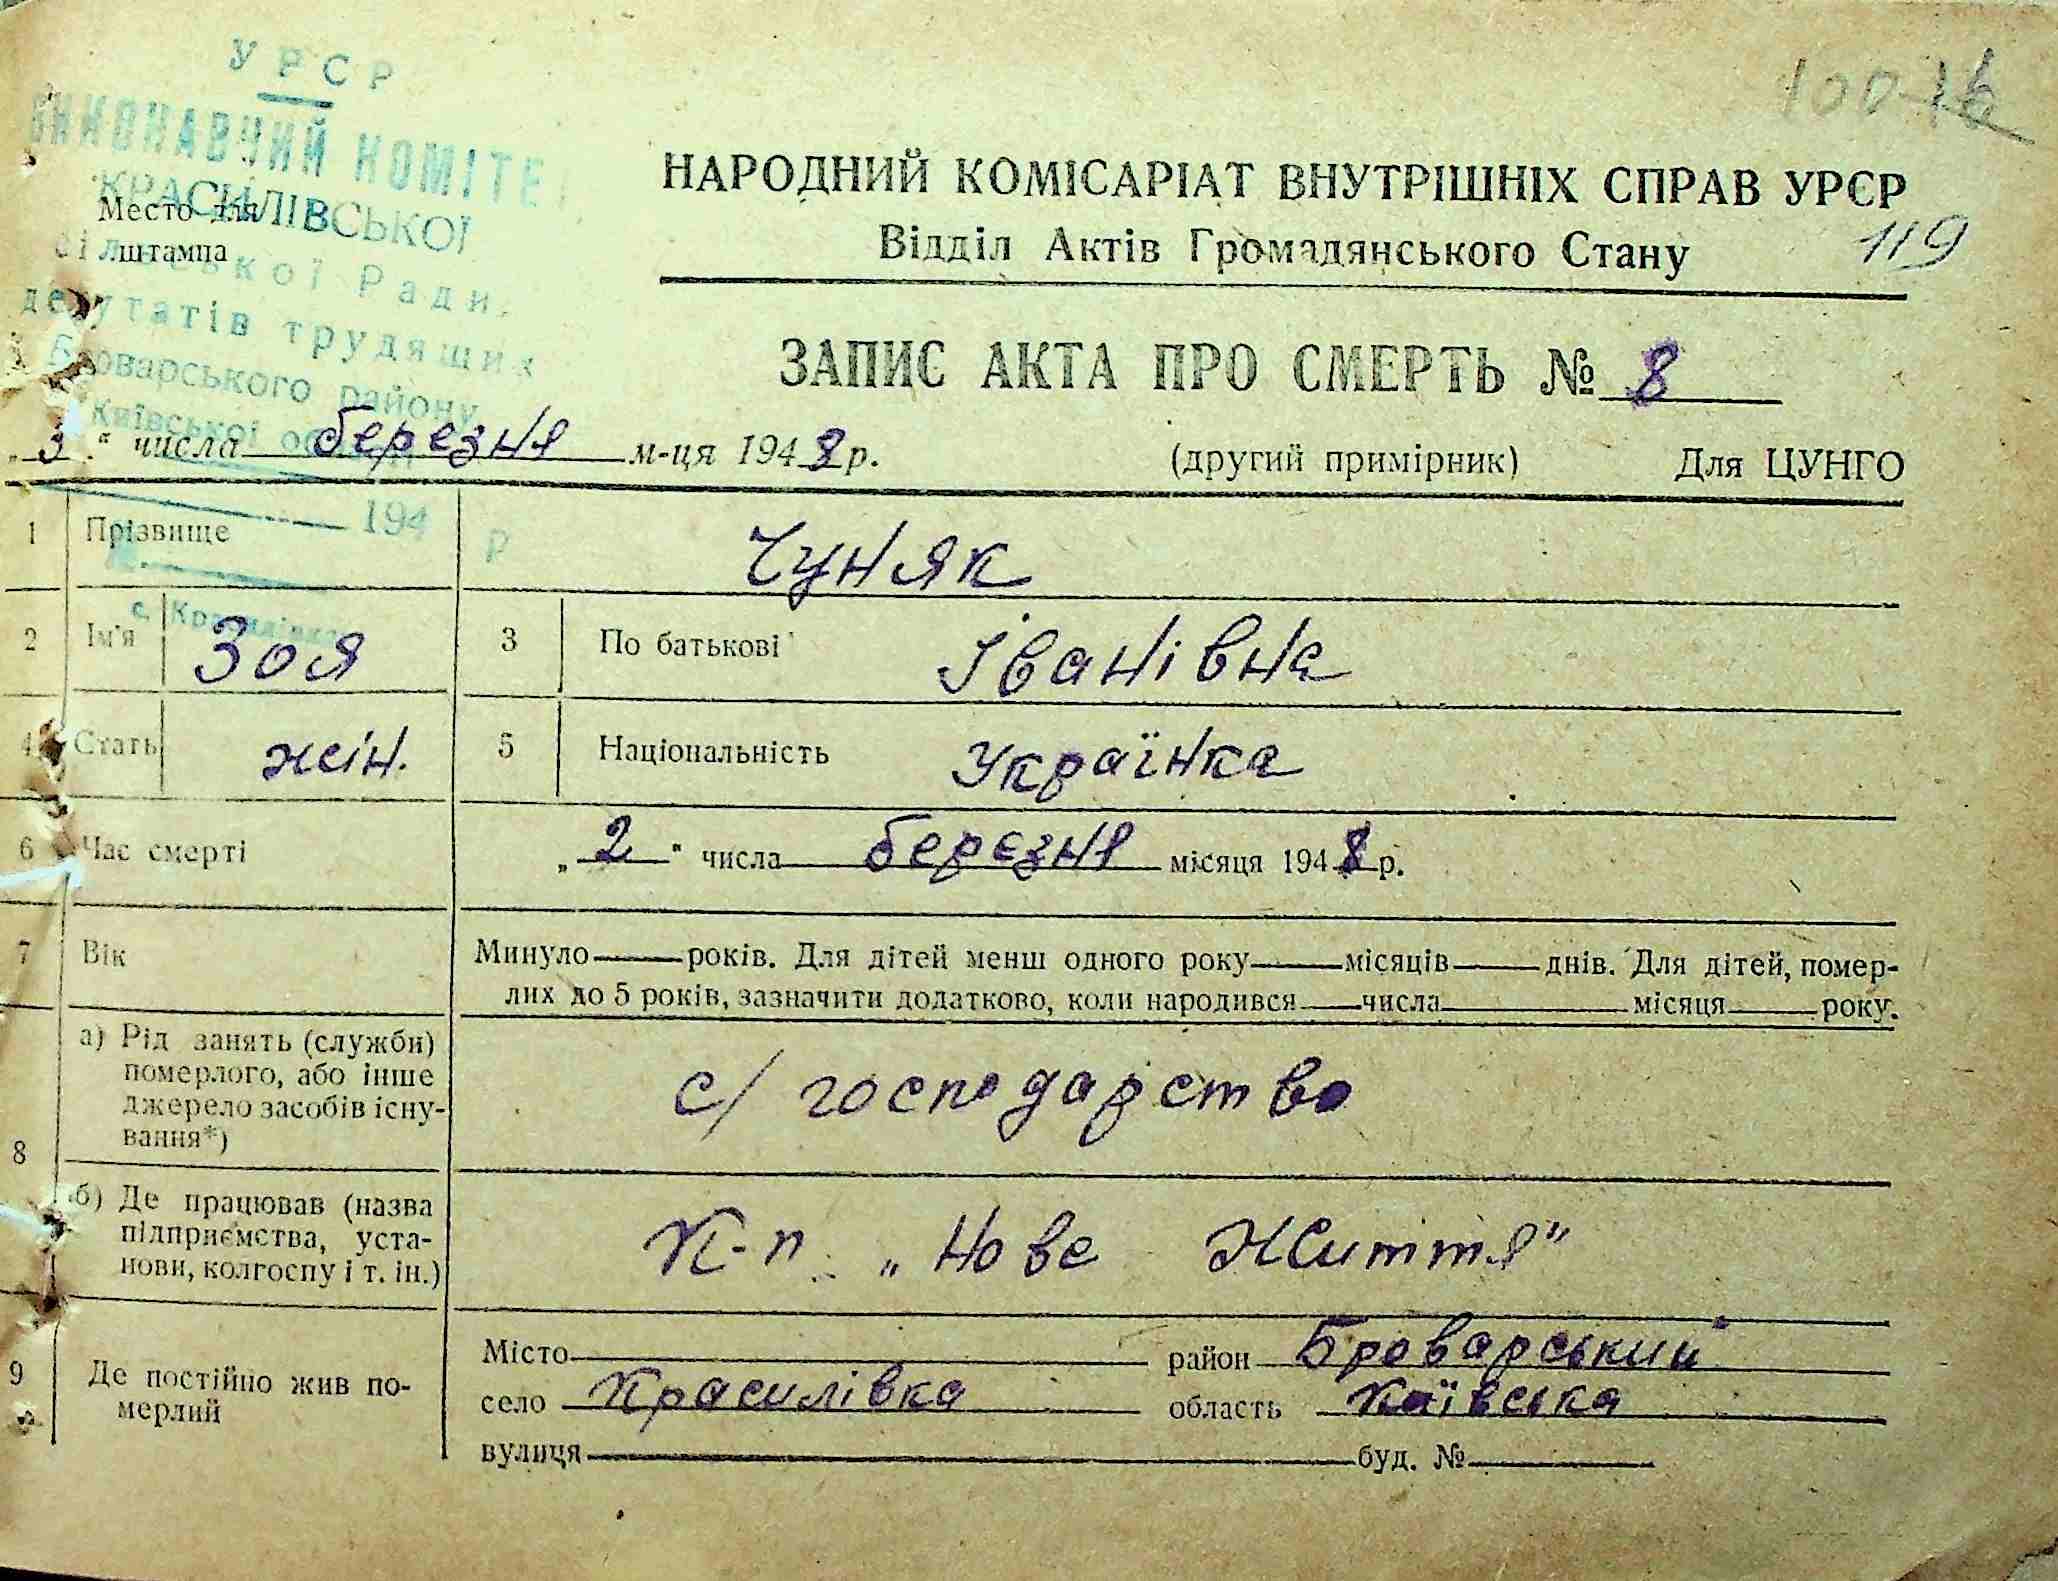 УРСР
ВИКОНАВЧИЙ КОМІТЕ
КРАСИЛІВСЬКОЇ
Место для
штампа
сільської Ради
депутатів трудящих
Броварського району
Київської
194 р
с. Красилівка
10076
НАРОДНИЙ КОМІСАРІАТ ВНУТРІШНІХ СПРАВ УРСР
Відділ Актів Громадянського Стану
119
ЗАПИС АКТА ПРО СМЕРТЬ № 8
„3“ числа березня м-ця 1948 р. (другий примірник) Для ЦУНГО
1 Прізвище Чуняк
2 Ім'я Зоя 3 По батькові Іванівна
4 Стать жін. 5 Національність Українка
6 Час смерті „2“ числа березня місяця 1948 р.
7 Вік Минуло років. Для дітей менш одного року місяців днів. Для дітей, помер-
лих до 5 років, зазначити додатково, коли народився числа місяця року.
8 а) Рід занять (служби)
померлого, або інше
джерело засобів існу-
вання*)
с/господарство
б) Де працював (назва
підприємства, уста-
нови, колгоспу і т. ін.)
К-п „Нове Життя"
9 Де постійно жив по-
мерлий
Місто район Броварський
село Красилівка область Київська
вулиця буд. №